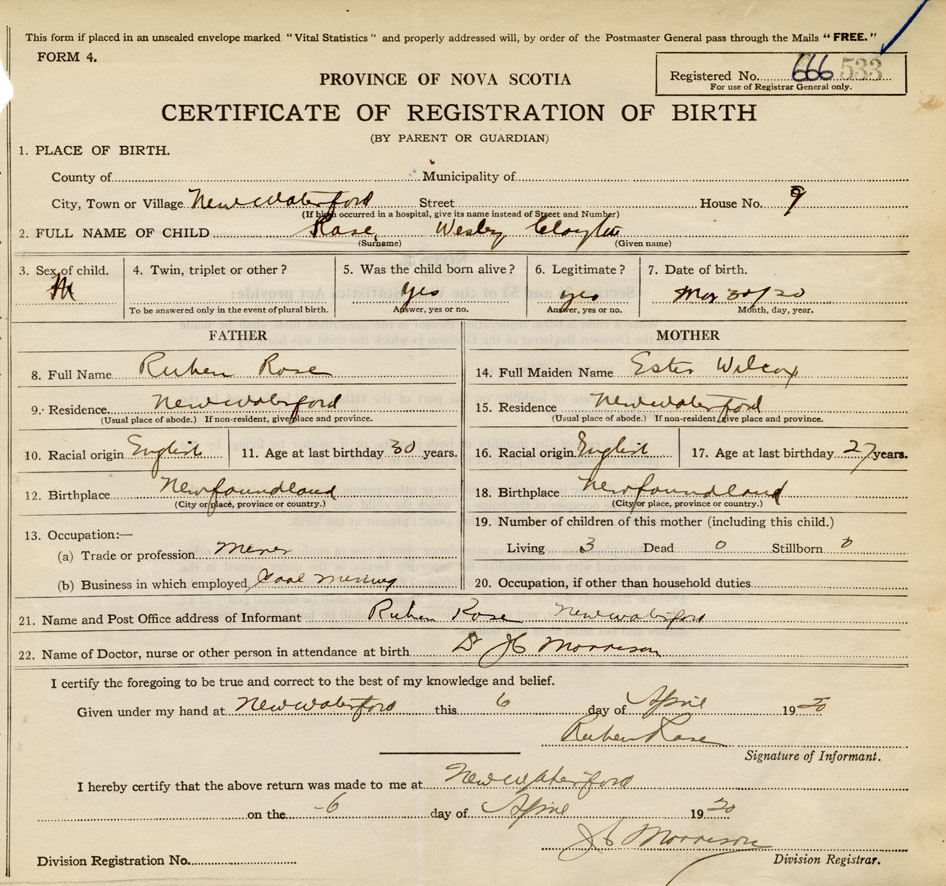 This form if placed in an unsealed envelope marked "Vital Statistics" and properly addressed will, by order of the Postmaster General pass through the Mails "FREE."
FORM 4.
Registered No. 666 533
For use of Registrar General only.
PROVINCE OF NOVA SCOTIA
CERTIFICATE OF REGISTRATION OF BIRTH
(BY PARENT OR GUARDIAN)
1. PLACE OF BIRTH.
County of Municipality of
City, Town or Village New Waterford Street House No. 9
(If birth occurred in a hospital, give its name instead of Street and Number)
2. FULL NAME OF CHILD Rose, Wesley
(Surname) (Given name)
3. Sex of child. 4. Twin, triplet or other? 5. Was the child born alive? 6. Legitimate? 7. Date of birth.
M yes yes Mar 30/20
To be answered only in the event of plural birth. Answer, yes or no. Answer, yes or no. Month, day, year.
FATHER MOTHER
8. Full Name Ruben Rose 14. Full Maiden Name Ester Wilcox
9. Residence New Waterford 15. Residence New Waterford
(Usual place of abode.) If non-resident, give place and province. (Usual place of abode.) If non-resident, give place and province.
10. Racial origin English 11. Age at last birthday 30 years. 16. Racial origin English 17. Age at last birthday 27 years.
12. Birthplace Newfoundland 18. Birthplace Newfoundland
(City or place, province or country.) (City or place, province or country.)
13. Occupation:— 19. Number of children of this mother (including this child.)
(a) Trade or profession Miner Living 3 Dead 0 Stillborn 0
(b) Business in which employed Coal Mining 20. Occupation, if other than household duties
21. Name and Post Office address of Informant Ruben Rose New Waterford
22. Name of Doctor, nurse or other person in attendance at birth Dr J C Morrison
I certify the foregoing to be true and correct to the best of my knowledge and belief.
Given under my hand at New Waterford this 6 day of April 19 20
Ruben Rose
Signature of Informant.
I hereby certify that the above return was made to me at New Waterford
on the 6 day of April 19 20
J C Morrison
Division Registration No. Division Registrar.